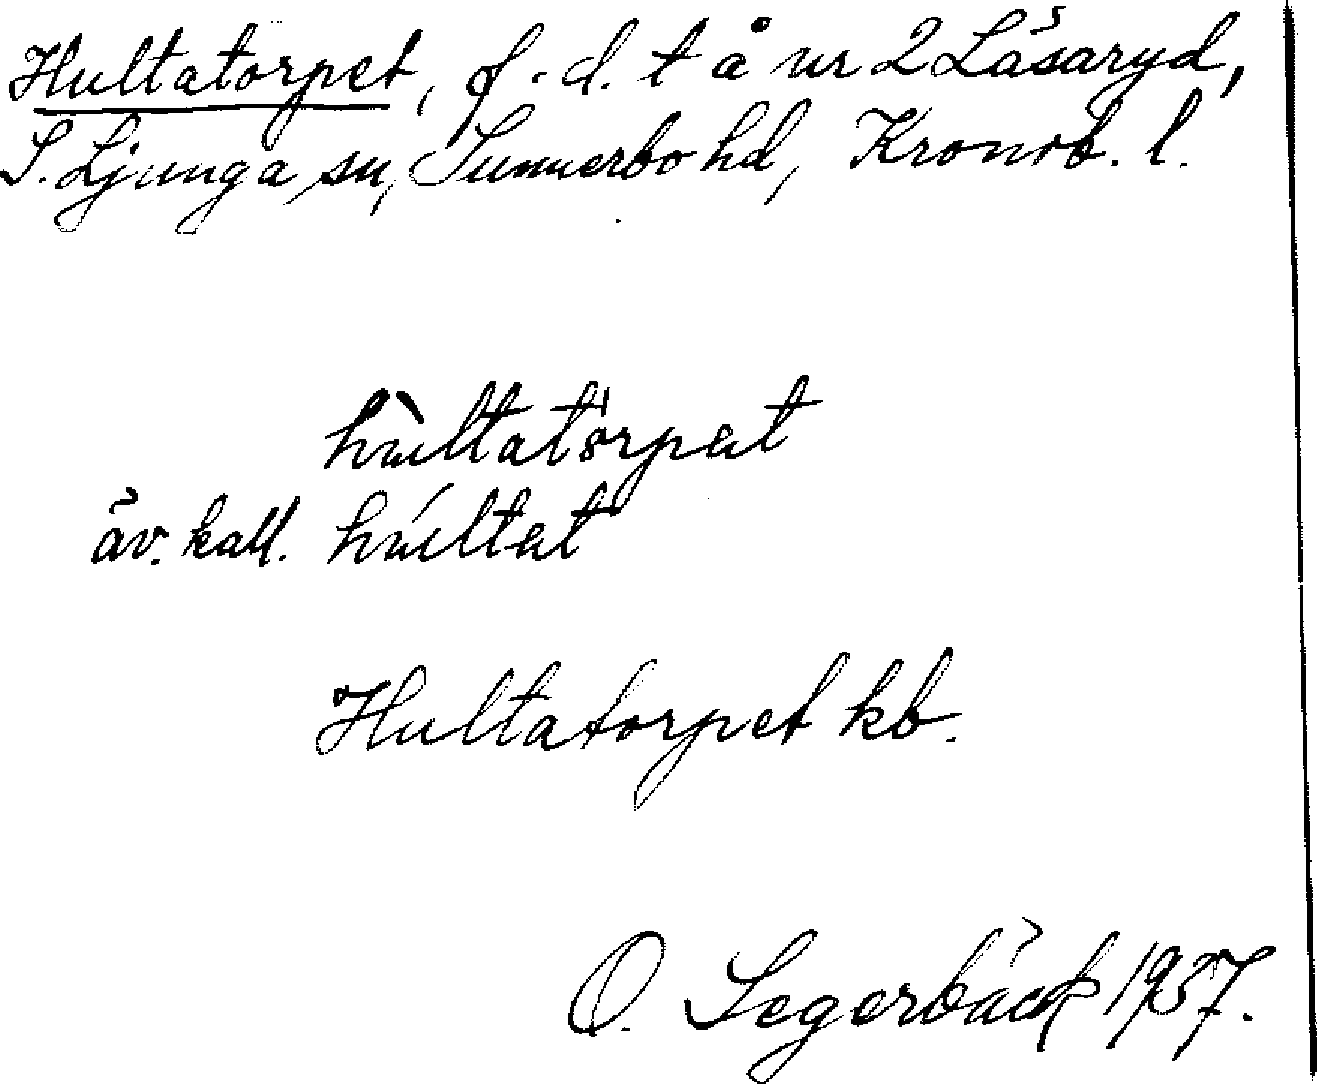 Hultatorpet, f. d. t å nr 2 Låsaryd,
S. Ljunga sn, Sunnerbo hd, Kronob. l.
hùltatörpet
äv. kall. húltet
Hultatorpet kb.
O. Segerbäck 1937.